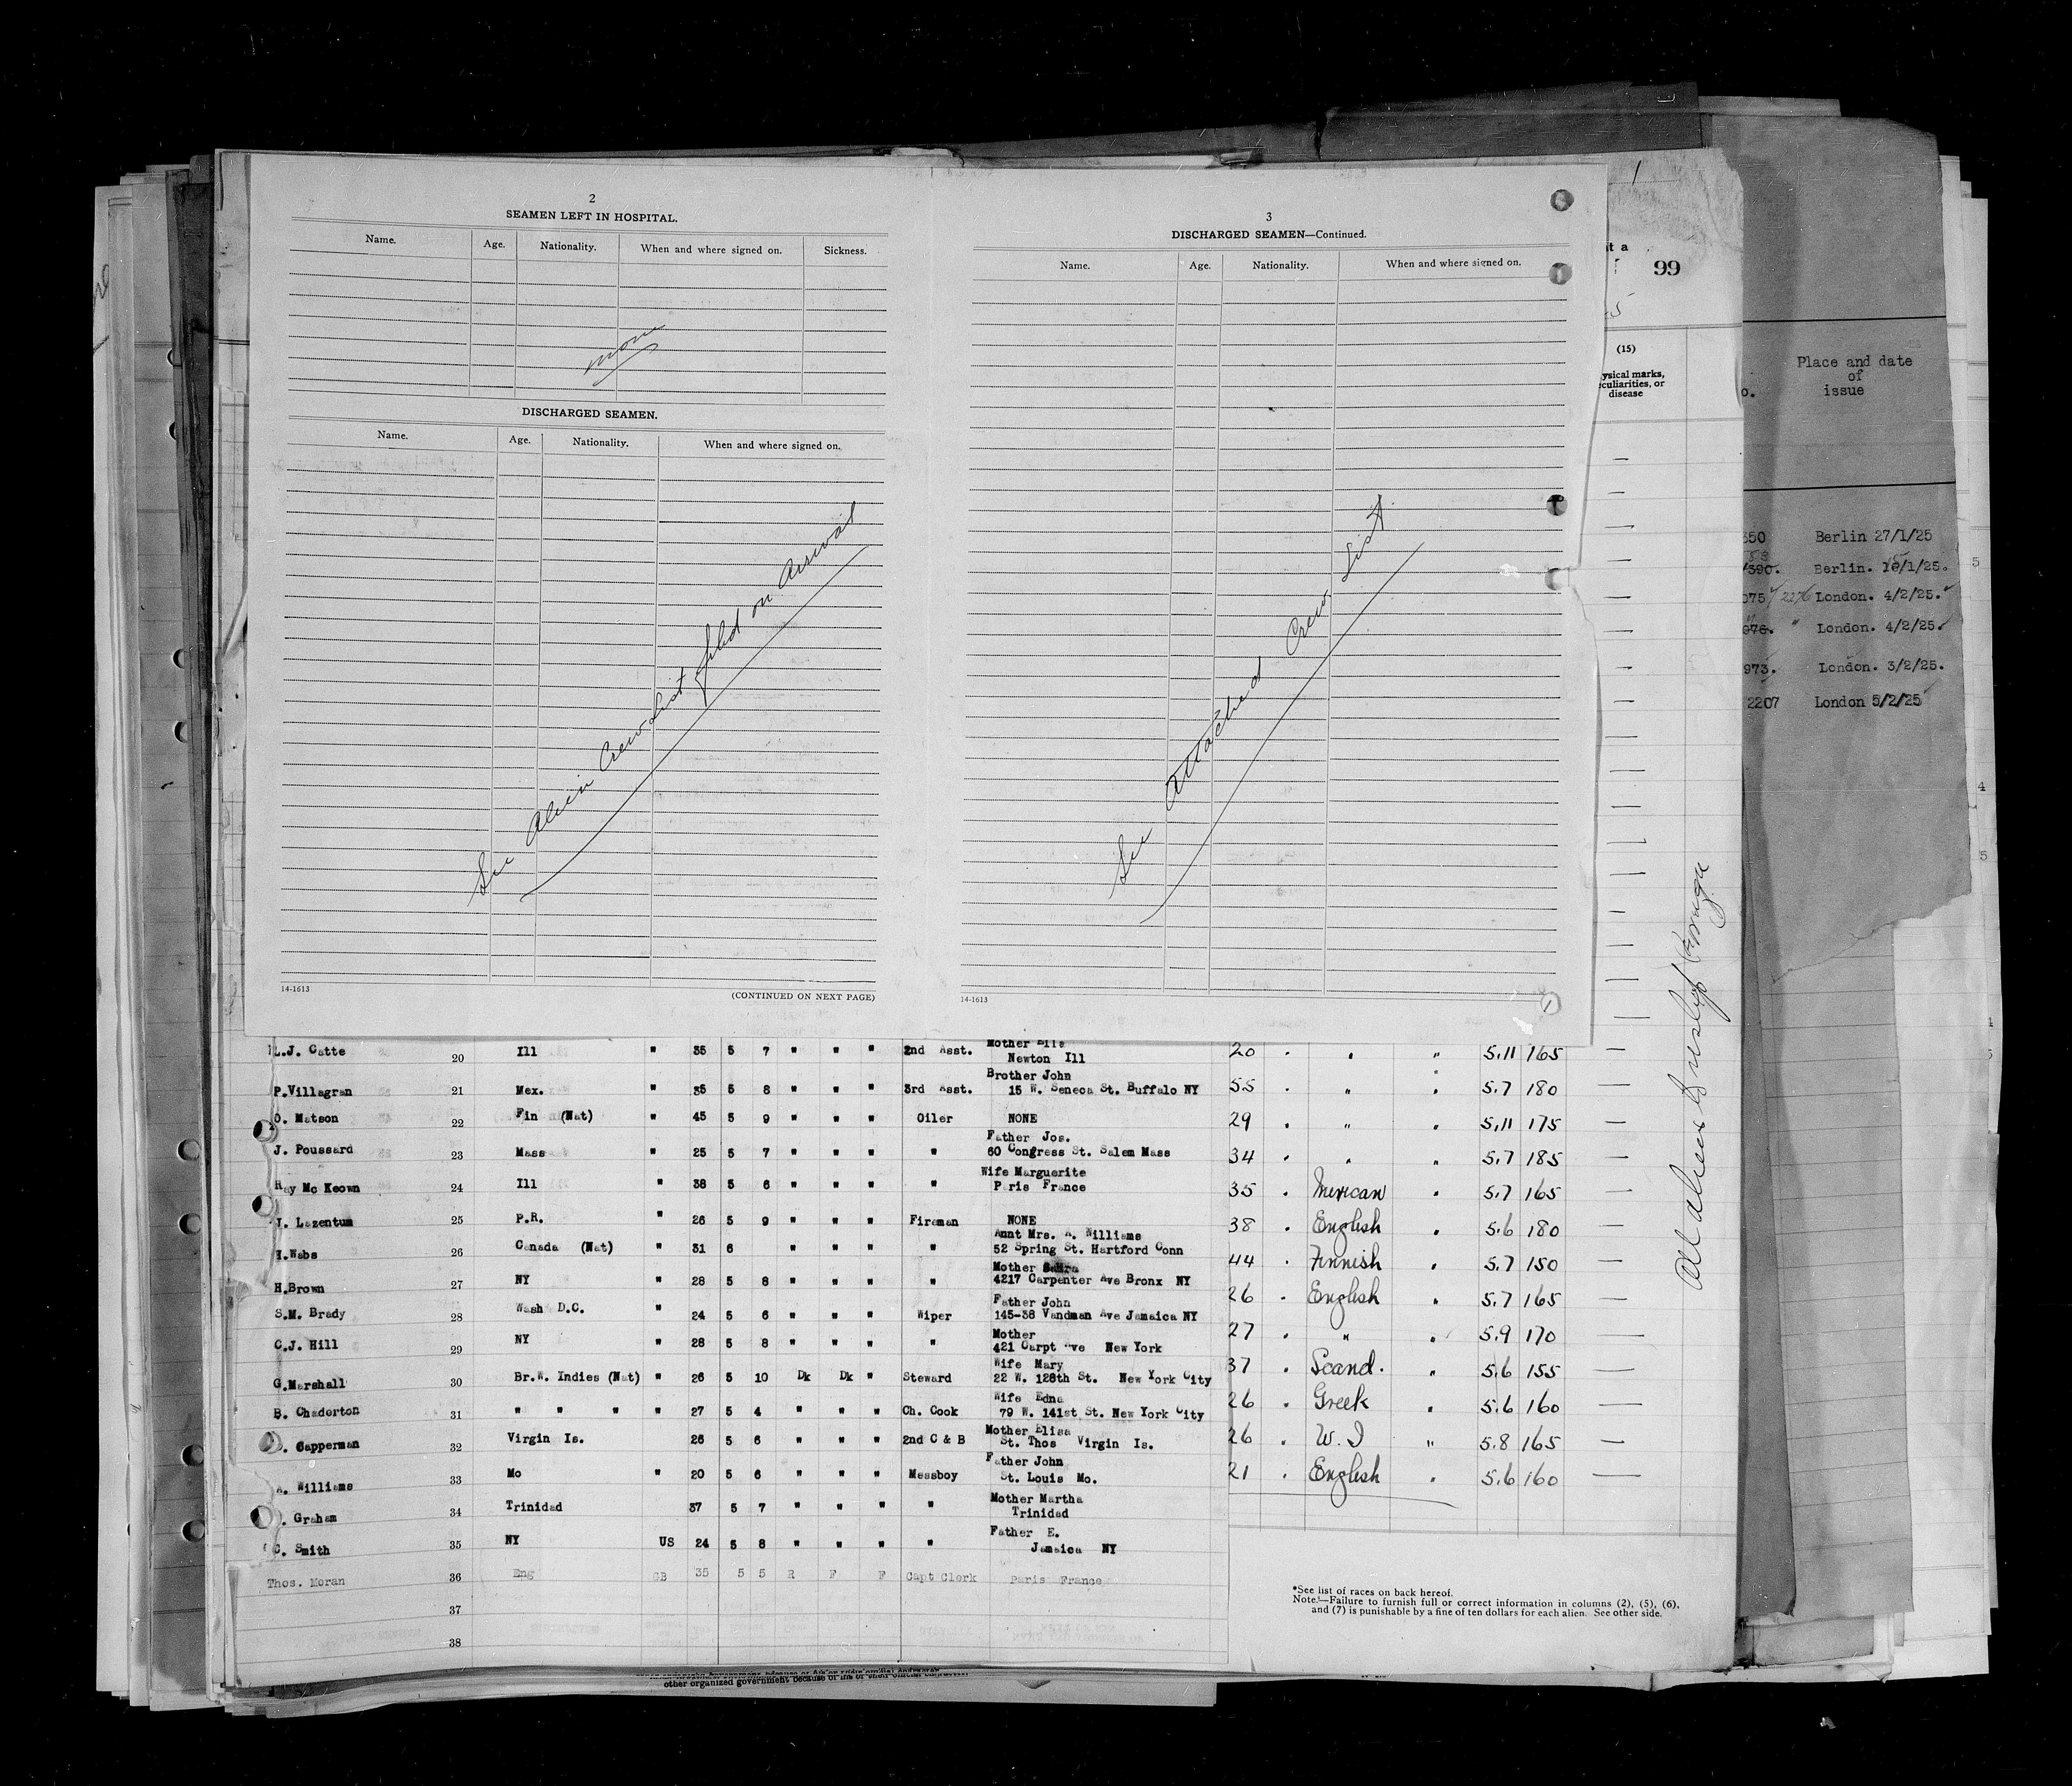 2
SEAMEN LEFT IN HOSPITAL.
Name. Age. Nationality. When and where signed on. Sickness.
none
DISCHARGED SEAMEN.
Name. Age. Nationality. When and where signed on.
See Alien Crew List filed on Arrival
14-1613
(CONTINUED ON NEXT PAGE)
3
DISCHARGED SEAMEN—Continued.
Name. Age. Nationality. When and where signed on.
See attached Crew List
14-1613
1
99
(15)
ysical marks,
culiarities, or
disease
o.
Place and date
of
issue
350 Berlin 27/1/25
Berlin. /1/25.
075 2276 London. 4/2/25.
976. " London. 4/2/25.
973. London. 3/2/25.
2207 London 5/2/25
L.J. Catte 20 Ill " 35 5 7 " " " 2nd Asst. Mother Ella
Newton Ill
P.Villagran 21 Mex. " 35 5 8 " " " 3rd Asst. Brother John
15 W. Seneca St. Buffalo NY
O. Matson 22 Fin (Nat) " 45 5 9 " " " Oiler NONE
J. Poussard 23 Mass " 25 5 7 " " " " Father Jos.
60 Congress St. Salem Mass
Ray Mc Keown 24 Ill " 38 5 6 " " " " Wife Marguerite
Paris France
Lazentum 25 P.R. " 26 5 9 " " " Fireman NONE
H.Wabs 26 Canada (Nat) " 31 6 " " " " Aunt Mrs. A. Williams
52 Spring St. Hartford Conn
H.Brown 27 NY " 28 5 8 " " " " Mother
4217 Carpenter Ave Bronx NY
S.M. Brady 28 Wash D.C. " 24 5 6 " " " Wiper Father John
145-38 Vandman Ave Jamaica NY
C.J. Hill 29 NY " 28 5 8 " " " " Mother
421 Carpt Ave New York
G.Marshall 30 Br.W. Indies (Nat) " 26 5 10 Dk Dk " Steward Wife Mary
22 W. 128th St. New York City
B. Chaderton 31 " " " " 27 5 4 " " " Ch. Cook Wife Edna
79 W. 141st St. New York City
. Capperman 32 Virgin Is. 26 5 6 " " " 2nd C & B Mother Elisa
St. Thos Virgin Is.
A. Williams 33 Mo " 20 5 6 " " " Messboy Father John
St. Louis Mo.
. Graham 34 Trinidad 37 5 7 " " " " Mother Martha
Trinidad
C. Smith 35 NY US 24 5 8 " " " " Father E.
Jamaica NY
Thos. Moran 36 Eng GB 35 5 5 R F F Capt Clerk Paris France
37
38
20 " " " 5.11 165 —
55 " " " 5.7 180 —
29 " " " 5.11 175 —
34 " " " 5.7 185 —
35 " Mexican " 5.7 165 —
38 " English " 5.6 180 —
44 " Finnish " 5.7 150 —
26 " English " 5.7 165 —
27 " " " 5.9 170 —
37 " Scand. " 5.6 155 —
26 " Greek " 5.6 160 —
26 " W.I " 5.8 165 —
21 " English " 5.6 160 —
All aliens
*See list of races on back hereof.
Note.—Failure to furnish full or correct information in columns (2), (5), (6),
and (7) is punishable by a fine of ten dollars for each alien. See other side.
other organized government because of his or their official character